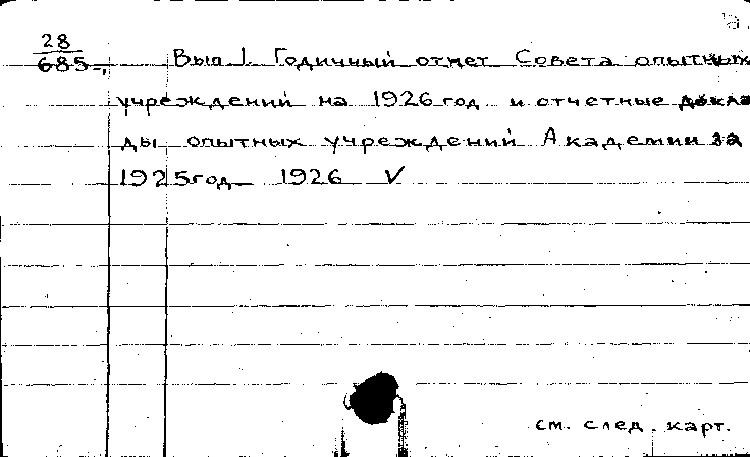 28
685-, Вып 1. Годичный отчет Совета опытных
учреждений на 1926 год и отчетные докла
ды опытных учреждений Академии за
1925 год 1926 V
см. след. карт.